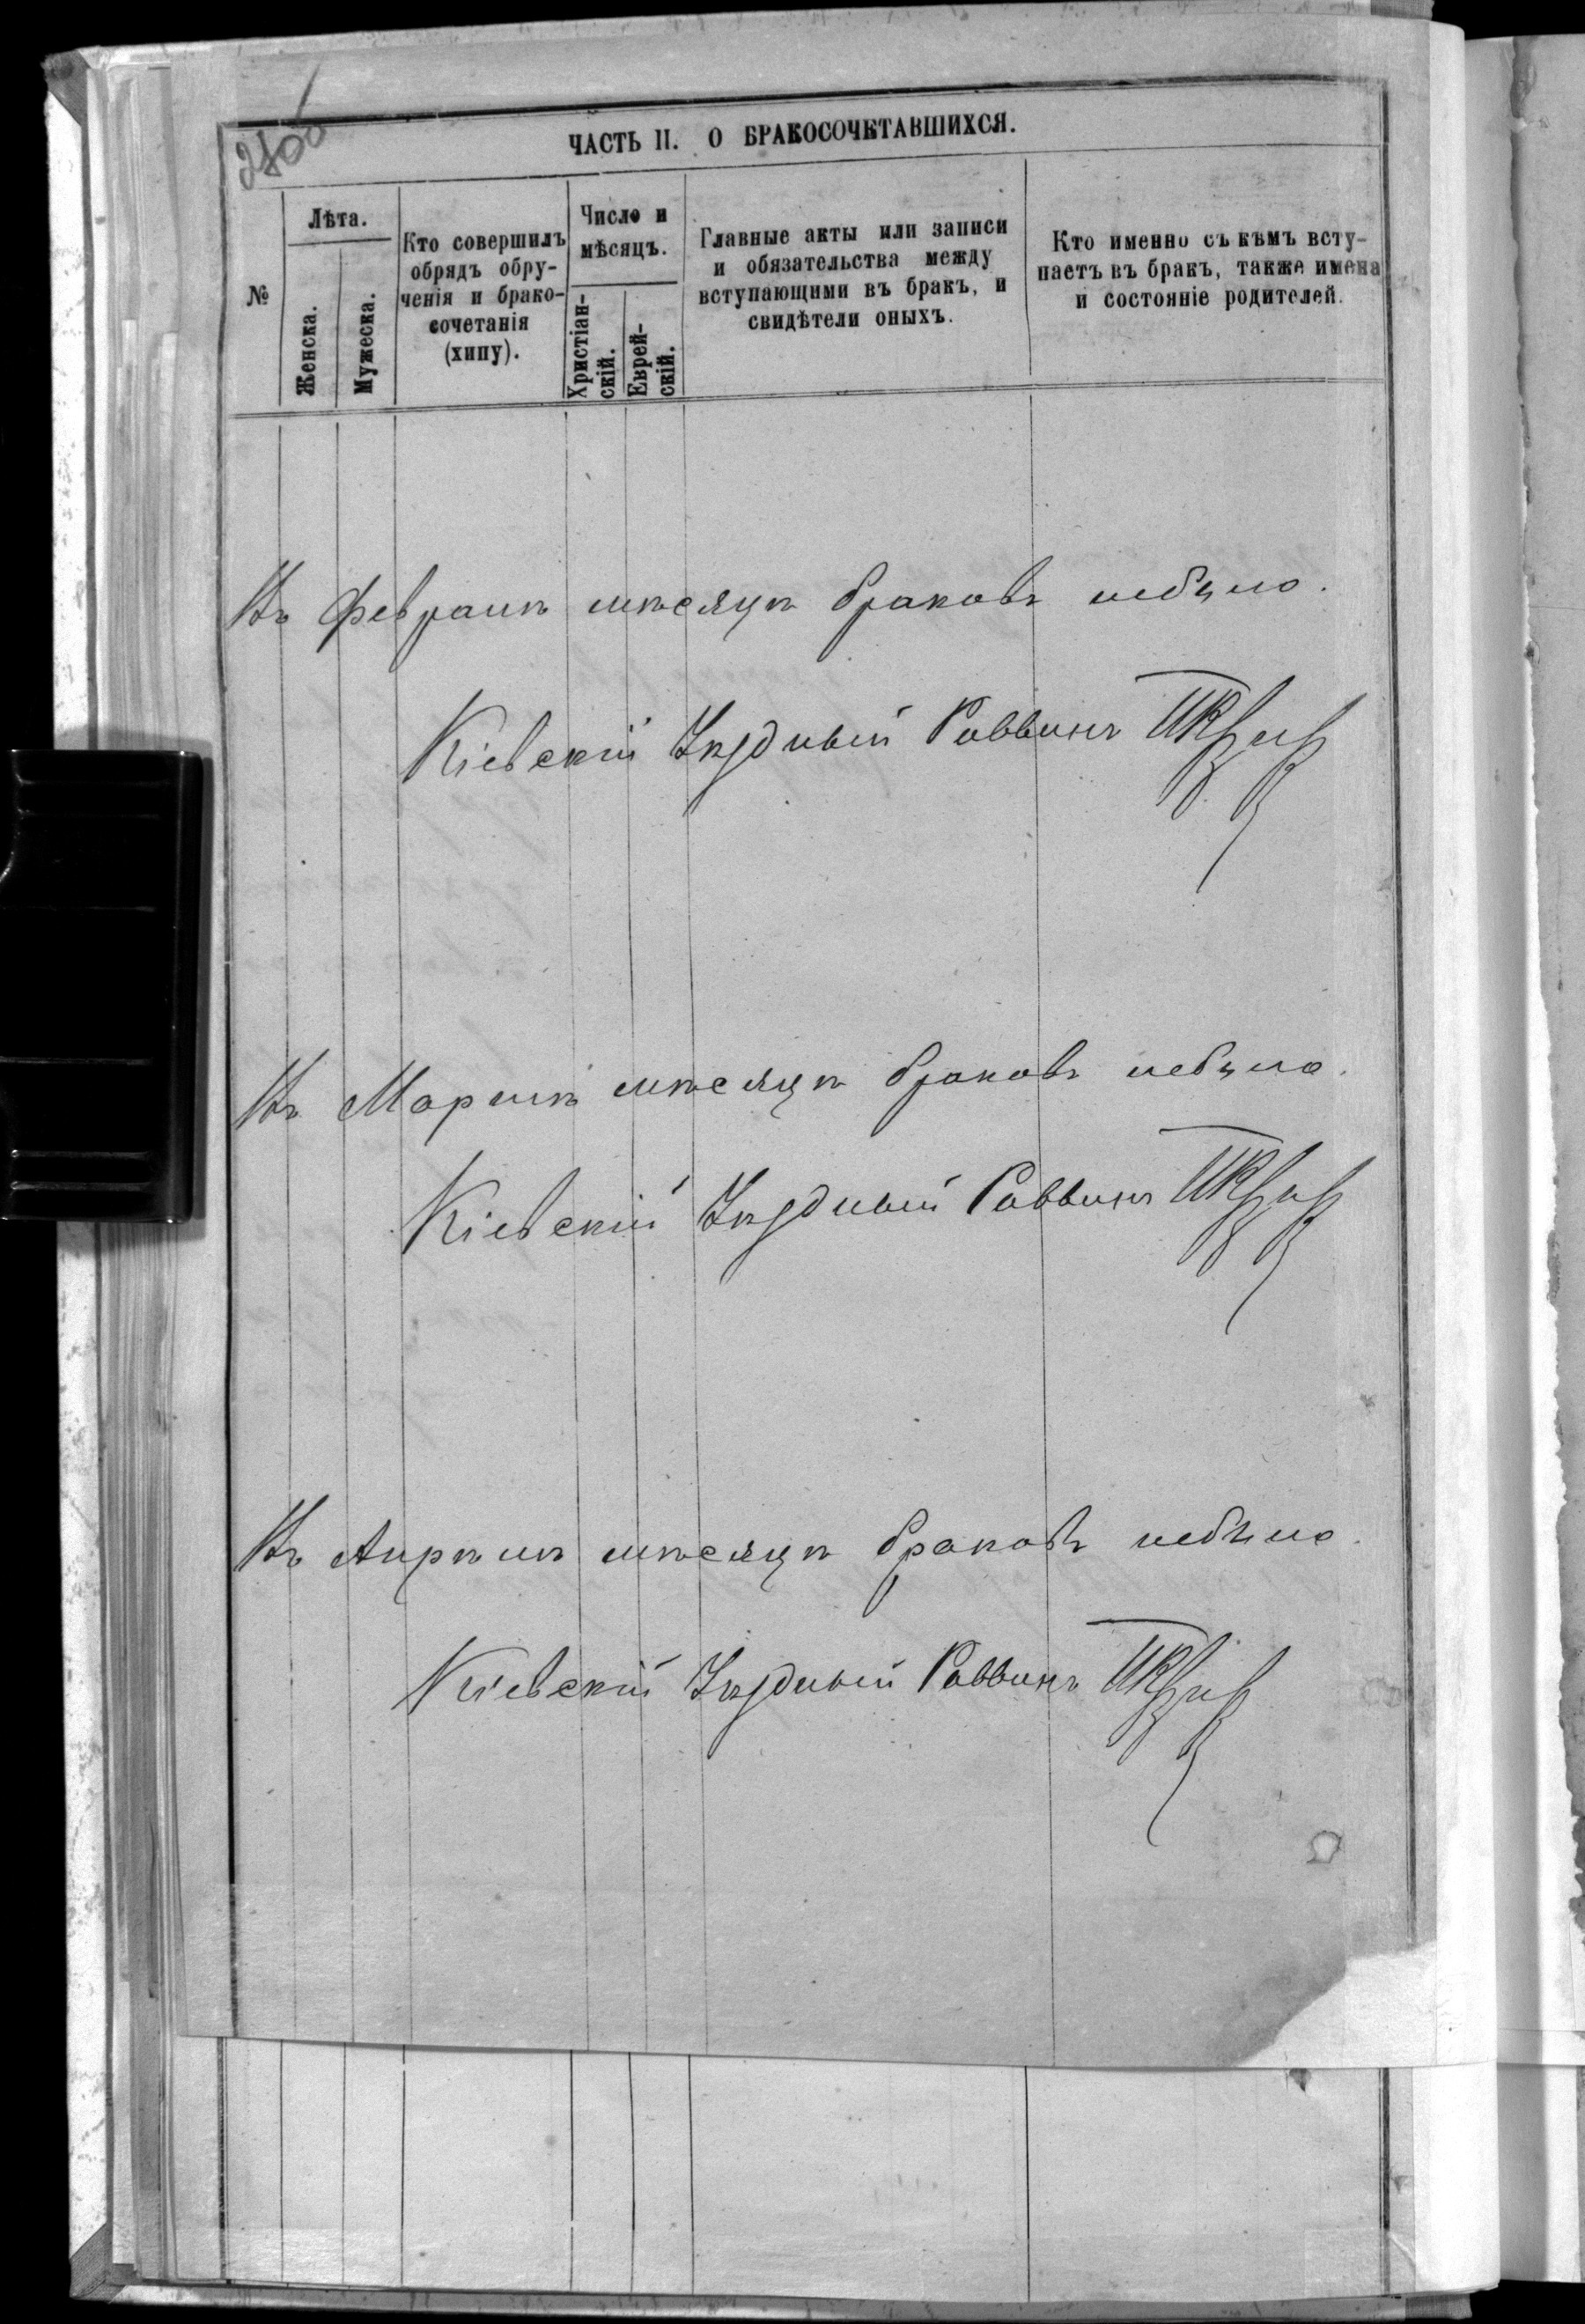 280б
ЧАСТЬ II. О БРАКОСОЧЕТАВШИХСЯ.
№
Лѣта.
Женска.
Мужеска.
Кто совершилъ
обрядъ обру-
ченія и брако-
сочетанія
(хипу).
Число и
мѣсяцъ.
Христіан-
скій.
Еврей-
скій.
Главные акты или записи
и обязательства между
вступающими въ бракъ, и
свидѣтели оныхъ.
Кто именно съ кѣмъ всту-
паетъ въ бракъ, также имена
и состояніе родителей.
Въ Февралѣ мѣсяцѣ браковъ небыло.
Кіевскій Уѣздный Раввинъ
Въ Мартѣ мѣсяцѣ браковъ небыло.
Кіевскій Уѣздный Раввинъ
Въ Апрѣлѣ мѣсяцѣ браковъ небыло.
Кіевскій Уѣздный Раввинъ